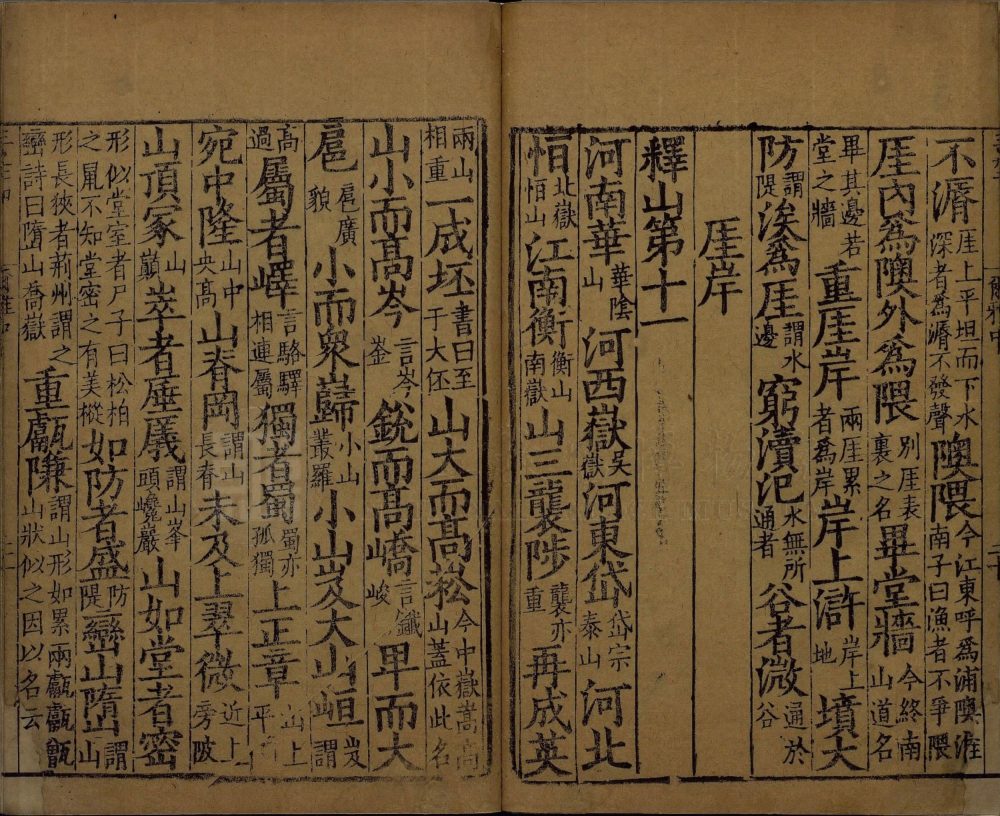 不漘厓上平坦而下水深者為漘不發聲隩隈今江東呼為浦隩淮南子曰漁者不爭隈
厓內為隩外為隈別厓表裏之名畢堂牆今終南山道名
畢其邊若堂之牆重厓岸兩厓累者為岸岸上滸岸上地墳大
防謂隄涘為厓謂水邊窮瀆汜水無所通者谷者溦通於谷
厓岸
釋山第十一
河南華華陰山河西嶽吳嶽河東岱岱宗泰山河北
恒北嶽恒山江南衡衡山南嶽山三襲陟襲亦重再成英
兩山相重一成坯書曰至于大伾山大而高崧今中嶽嵩高山蓋依此名
山小而高岑言岑崟銳而高嶠言鑯峻卑而大
扈扈廣貌小而眾巋小山叢羅小山岌大山峘岌謂
高過屬者嶧言駱驛相連屬獨者蜀蜀亦孤獨上正章山上平
宛中隆山中央高山脊岡謂山長脊未及上翠微近上旁陂
山頂冢山巔崒者厜㕒謂山峯頭巉巖山如堂者密
形似堂室者尸子曰松柏之鼠不知堂密之有美樅如防者盛防隄巒山嶞謂山
形長狹者荊州謂之巒詩曰嶞山喬嶽重甗隒謂山形如累兩甗甗甑山狀似之因以名云